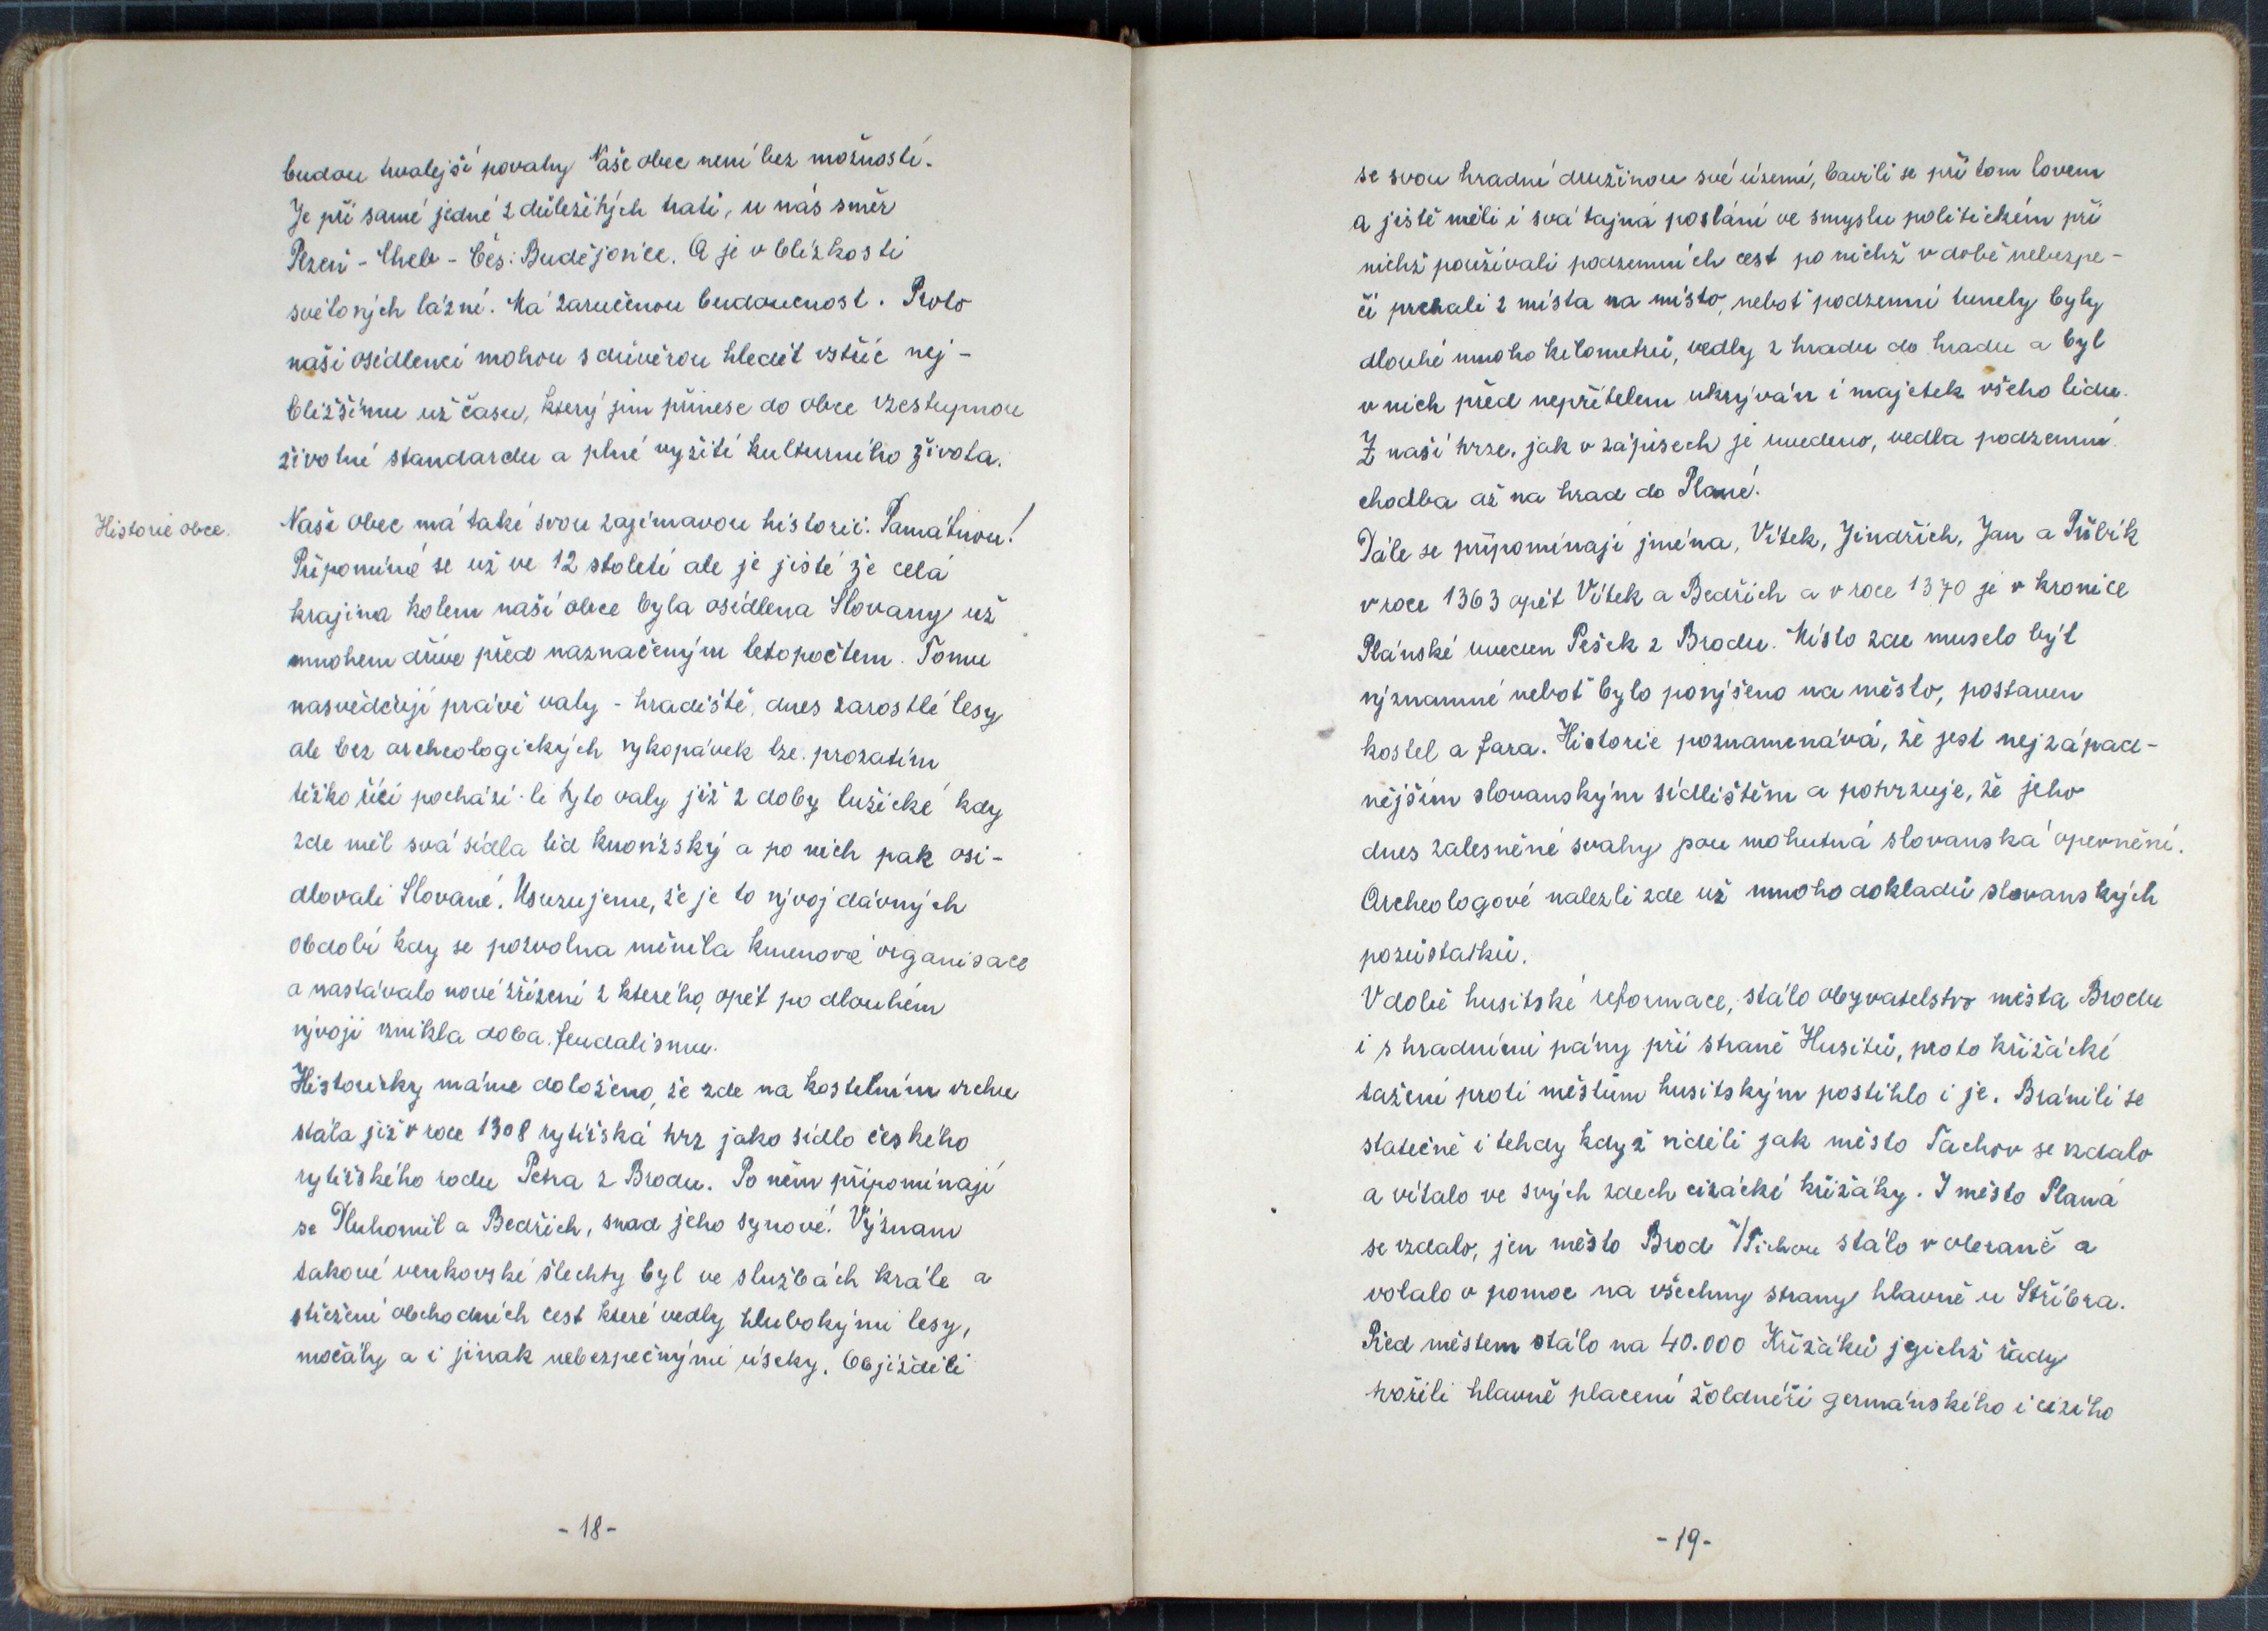 budou trvalejší povahy Naše obec není bez možností.
Je při samé jedné z důležitých tratí, u nás směr
Plzeň - Cheb - Čes: Budějovice. A je v blízkosti
světových lázní. Má zaručenou budoucnost. Proto
naši osídlenci mohou s důvěrou hledět vstříc nej-
bližšímu už času, který jim přinese do obce vzestupnou
životní standardu a plné vyžití kulturního života.
Historie obce.
Naše obec má také svou zajímavou historii. Památnou!
Připomíná se už ve 12 století ale je jisté že celá
krajina kolem naší obce byla osídlena Slovany už
mnohem dříve před naznačeným letopočtem. Tomu
nasvědčují právě valy - hradiště, dnes zarostlé lesy
ale bez archeologických vykopávek lze. prozatím
těžko říci pochází-li tyto valy již z doby lužické kdy
zde měl svá sídla lid knovízský a po nich pak osi-
dlovali Slované. Usuzujeme, že je to vývoj dávných
období kdy se pozvolna měnila kmenová organisace
a nastávalo nové zřízení z kterého, opět po dlouhém
vývoji vznikla doba feudalismu.
Historicky máme doloženo, že zde na kostelním vrchu
stála již v roce 1308 rytířská tvrz jako sídlo českého
rytířského rodu Petra z Brodu. Po něm připomínají
se Dluhomil a Bedřich, snad jeho synové. Význam
takové venkovské šlechty byl ve službách krále a
střežení obchodních cest které vedly hlubokými lesy,
močály a i jinak nebezpečnými úseky. Objížděli
-18-
se svou hradní družinou své území, bavili se při tom lovem
a jistě měli i svá tajná poslání ve smyslu politickém při
nichž používali podzemních cest po nichž v době nebezpe-
čí prchali z místa na místo, neboť podzemní tunely byly
dlouhé mnoho kilometrů, vedly z hradu do hradu a byl
v nich před nepřítelem ukrýván i majetek všeho lidu.
Z naší tvrze, jak v zápisech je uvedeno, vedla podzemní
chodba až na hrad do Plané.
Dále se připomínají jména, Vítek, Jindřich, Jan a Přibík
v roce 1363 opět Vítek a Bedřich a v roce 1370 je v kronice
Plánské uveden Pešek z Brodu. Místo zde muselo být
významné neboť bylo povýšeno na město, postaven
kostel a fara. Historie poznamenává, že jest nejzápad-
nějším slovanským sídlištěm a potvrzuje, že jeho
dnes zalesněné svahy jsou mohutná slovanská opevnění.
Archeologové nalezli zde už mnoho dokladů slovanských
pozůstatků.
V době husitské reformace, stálo obyvatelstvo města Brodu
i s hradními pány při straně Husitů, proto křižácké
tažení proti městům husitským postihlo i je. Bránili se
statečně i tehdy když viděli jak město Tachov se vzdalo
a vítalo ve svých zdech cizácké křižáky. I město Planá
se vzdalo, jen město Brod n/Tichou stálo v obraně a
volalo o pomoc na všechny strany hlavně u Stříbra.
Před městem stálo na 40.000 Křižáků jejichž řady
tvořili hlavně placení žoldnéři germánského i cizího
-19-